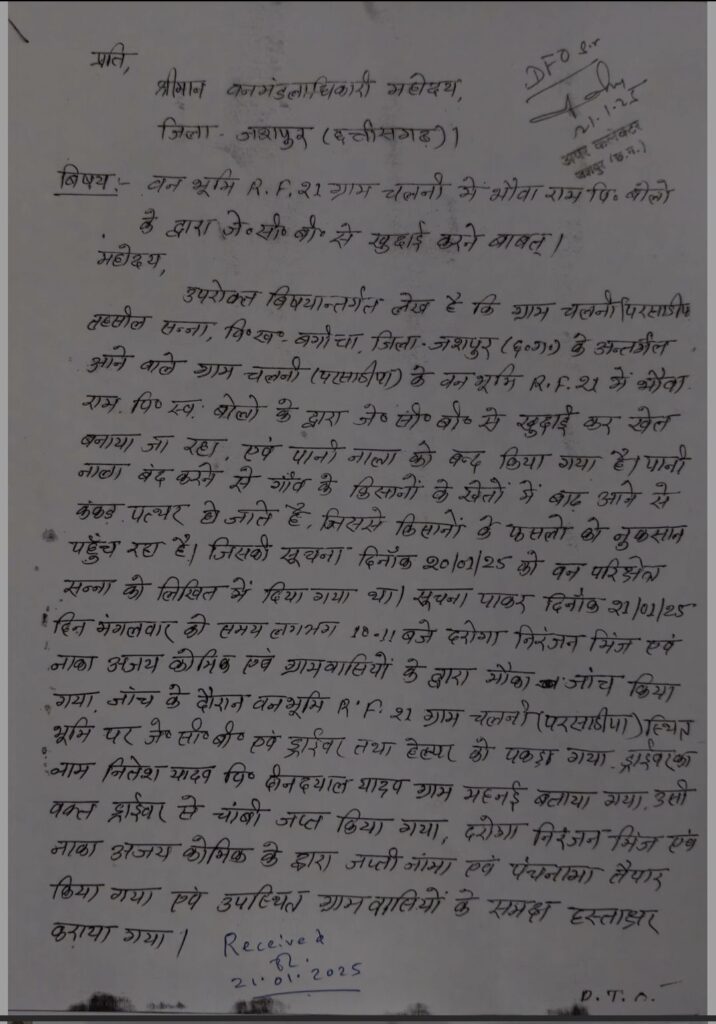 प्रति,
श्रीमान वनमंडलाधिकारी महोदय,
जिला - जशपुर (छत्तीसगढ़)।
DFO Sr
21.1.25
अपर कलेक्टर
जशपुर (छ.ग.)
विषय:- वन भूमि R.F.21 ग्राम चलनी में भौवा राम पि० बोलो
के द्वारा जे०सी०बी० से खुदाई करने बाबत्।
महोदय,
उपरोक्त विषयान्तर्गत लेख है कि ग्राम चलनी (परसाडीपा
तहसील सन्ना, वि०ख०- बगीचा, जिला-जशपुर (छ.ग.) के अन्तर्गत
आने वाले ग्राम चलनी (परसाडीपा) के वन भूमि R.F.21 में भौवा
राम पि० स्व. बोलो के द्वारा जे० सी० बी० से खुदाई कर खेत
बनाया जा रहा, एवं पानी नाला को बन्द किया गया है। पानी
नाला बंद करने से गाँव के किसानों के खेतों में बाढ आने से
कंकड़ पत्थर हो जाते है, जिससे किसानों के फसलो को नुकसान
पहुँच रहा है। जिसकी सूचना दिनाँक 20/01/25 को वन परिक्षेत्र
सन्ना को लिखित में दिया गया था। सूचना पाकर दिनाँक 21/01/25
दिन मंगलवार को समय लगभग 10-11 बजे दरोगा निरंजन मिंज एवं
नाका अजय कोमिक एवं ग्रामवासियों के द्वारा मौका जांच किया
गया, जांच के दौरान वनभूमि R.F.21 ग्राम चलनी (परसाडीपा) स्थित
भूमि पर जे० सी० बी० एवं ड्राईवर तथा हेल्पर को पकड़ा गया. ड्राईवर का
नाम नितेश यादव पि० दीनदयाल यादव ग्राम महनई बताया गया. उसी
वक्त ड्राईवर से चांबी जप्त किया गया, दरोगा निरंजन मिंज एवं
नाका अजय कोमिक के द्वारा जप्ती नामा एवं पंचनामा तैयार
किया गया एवं उपस्थित ग्रामवासियों के समक्ष हस्ताक्षर
कराया गया।
Received
21.01.2025
P.T.O.